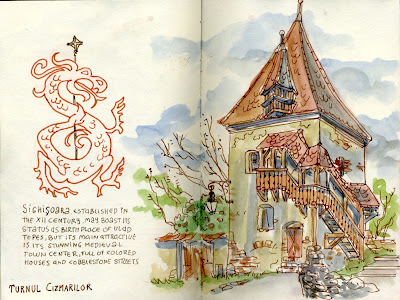 Sighişoara, ESTABLISHED IN
THE XII CENTURY, MAY BOAST ITS
STATUS AS BIRTH PLACE OF VLAD
TEPES, BUT ITS MAIN ATTRACTIVE
IS ITS STUNNING MEDIEVAL
TOWN CENTER, FULL OF COLORED
HOUSES AND COBBLESTONE STREETS
TURNUL CIZMARILOR